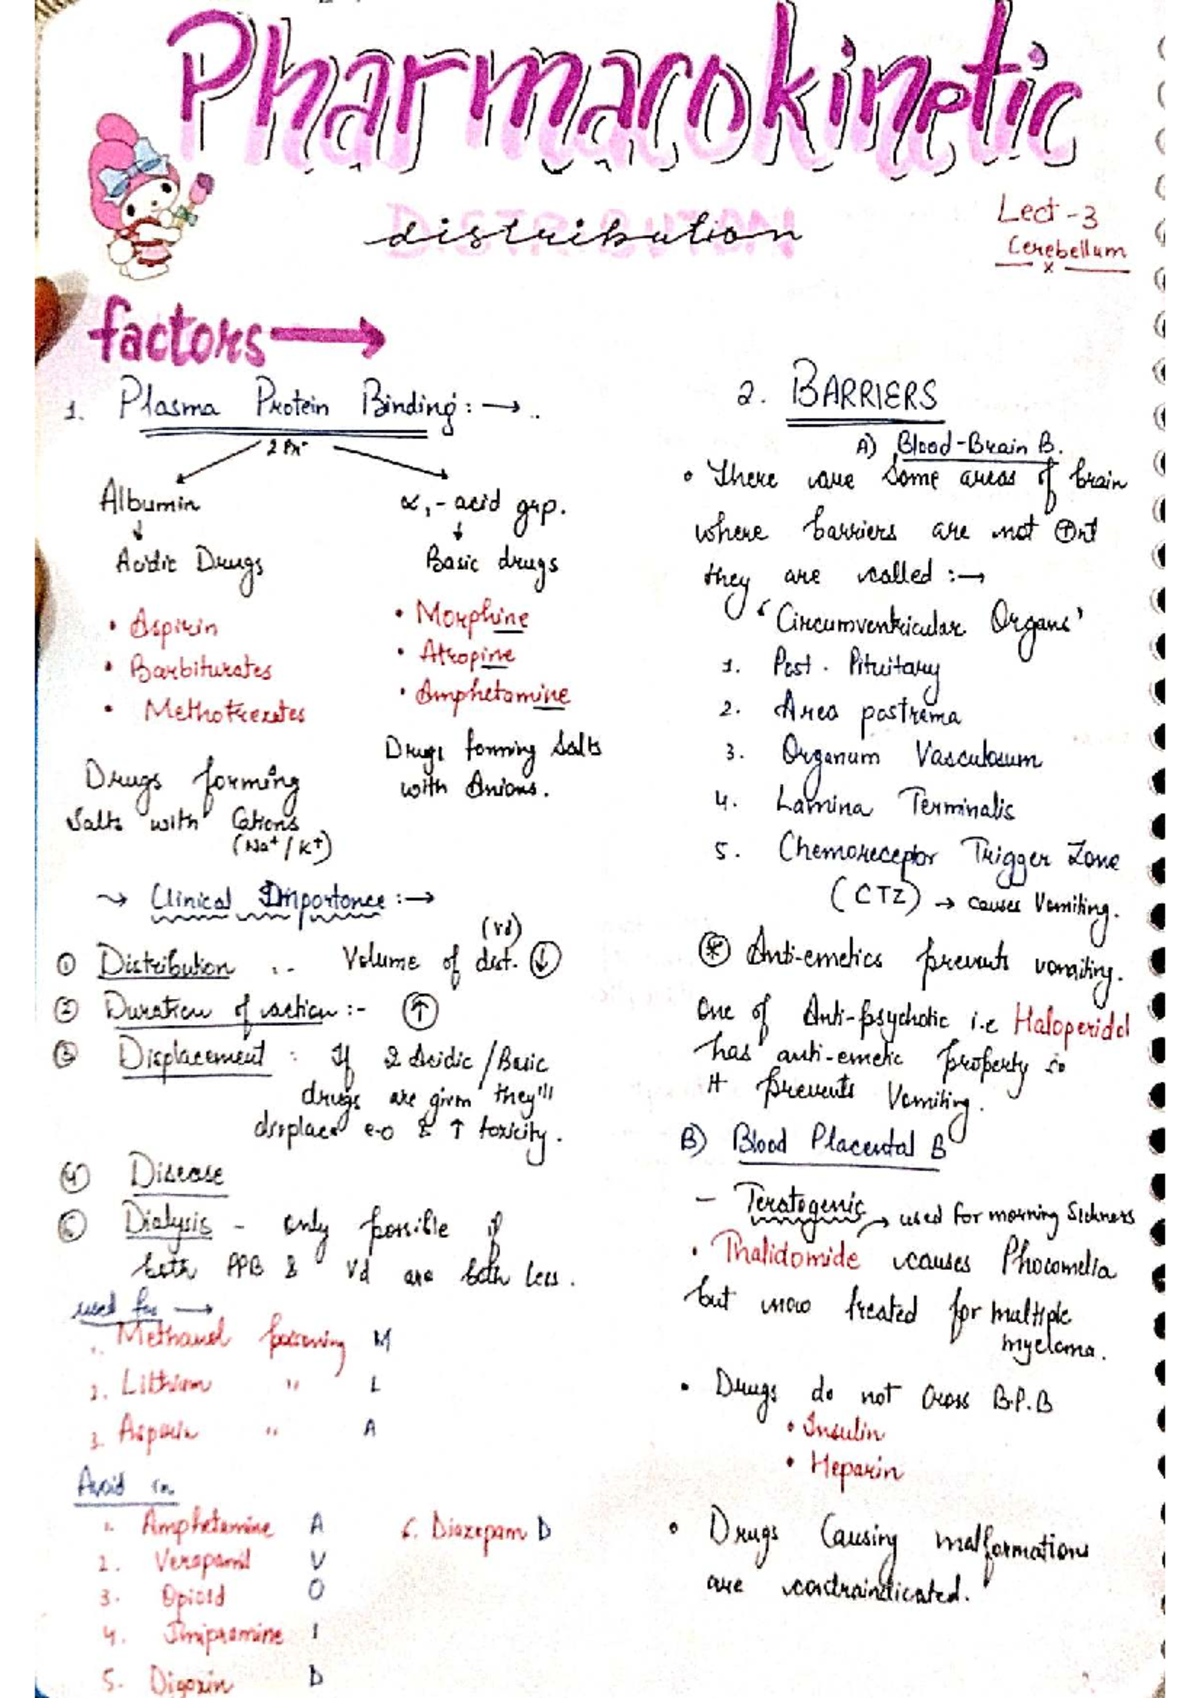 Pharmacokinetic
DISTRIBUTION
distribution
Lect-3
Cerebellum
x
factors →
1. Plasma Protein Binding :→ ..
2 Prn
Albumin
↓
Acidic Drugs
• Aspirin
• Barbiturates
• Methotrexates
Drugs forming
Salts with Cations
(Na+/K+)
α1-acid grp.
↓
Basic drugs
• Morphine
• Atropine
• Amphetamine
Drugs forming Salts
with Anions.
→ Clinical Importance :→
① Distribution .. Volume of dist. (Vd) ↓
② Duration of action :- ↑
③ Displacement : If 2 Acidic /Basic
drugs are given they'll
displace e-o & ↑ toxicity.
④ Disease
⑤ Dialysis - only possible if
both PPB & Vd are both less.
used for →
1. Methanol poisoning M
2. Lithium " L
3. Asprin " A
Avoid in
1. Amphetamine A
2. Verapamil V
3. Opioid O
4. Imipramine I
5. Digoxin D
6. Diazepam D
2. BARRIERS
A) Blood-Brain B.
• There are some areas of brain
where barriers are not ⊕nt
they are called :→
'Circumventricular Organs'
1. Post. Pituitary
2. Area postrema
3. Organum Vasculosum
4. Lamina Terminalis
5. Chemoreceptor Trigger Zone
(CTZ) → causes Vomiting.
⊛ Anti-emetics prevents vomiting.
one of Anti-psychotic i.e Haloperidol
has anti-emetic property so
it prevents Vomiting.
B) Blood Placental B
- Teratogenic
→ used for morning Sickness
• Thalidomide causes Phocomelia
but now treated for multiple
myeloma.
• Drugs do not Cross B.P.B
• Insulin
• Heparin
• Drugs Causing malformations
are contraindicated.